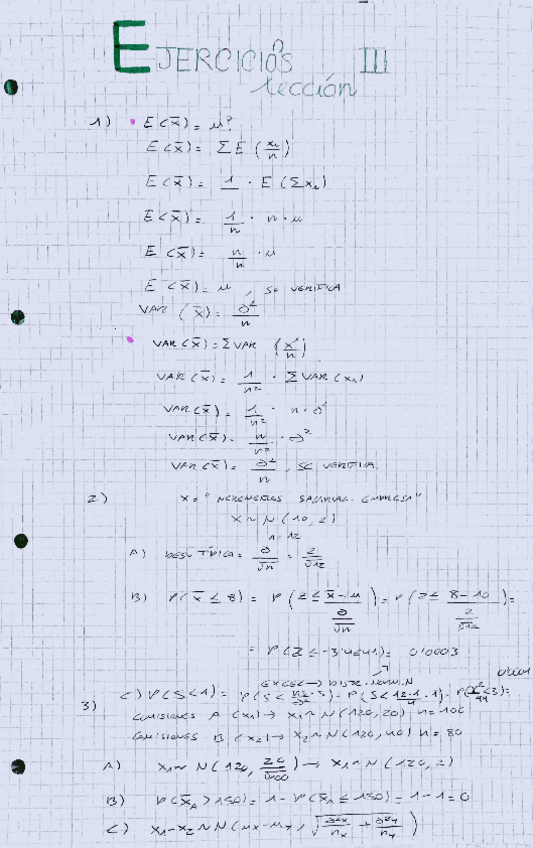 EJERCICIOS III
lección
1) • E(x̄) = μ?
E(x̄) = Σ E (xi/n)
E(x̄) = 1 · E(Σxi)
E(x̄) = 1/n · n · μ
E(x̄) = n/n · μ
E(x̄) = μ, SE VERIFICA
VAR (x̄) = σ²/n
• VAR(x̄) = ΣVAR (xi/n)
VAR(x̄) = 1/n² · ΣVAR(xi)
VAR(x̄) = 1/n² · n · σ²
VAR(x̄) = n/n² · σ²
VAR(x̄) = σ²/n, SE VERIFICA.
2) X = " SALARIAL EMPRESA"
X ~ N(10, 2)
n = 12
A) DESV TÍPICA = σ/√n = 2/√12
B) P(x̄ ≤ 8) = P (Z ≤ x̄ - μ / σ/√n) = P (Z ≤ 8 - 10 / 2/√12) =
= P(Z ≤ -3'4641) = 0'0003
EXCEL → DISTR. NORM. N
C) P(S < 1) =
3) COMISIONES A (x1) → x1 ~ N(120, 20) n = 100
COMISIONES B (x2) → x2 ~ N(120, 40) n = 80
A) x1 ~ N(120, 20/√100) → x1 ~ N(120, 2)
B) P(x̄A > 150) = 1 - P(x̄A ≤ 150) = 1 - 1 = 0
C) x1 - x2 ~ N(μx - μy, √(σ²x/nx + σ²y/ny))